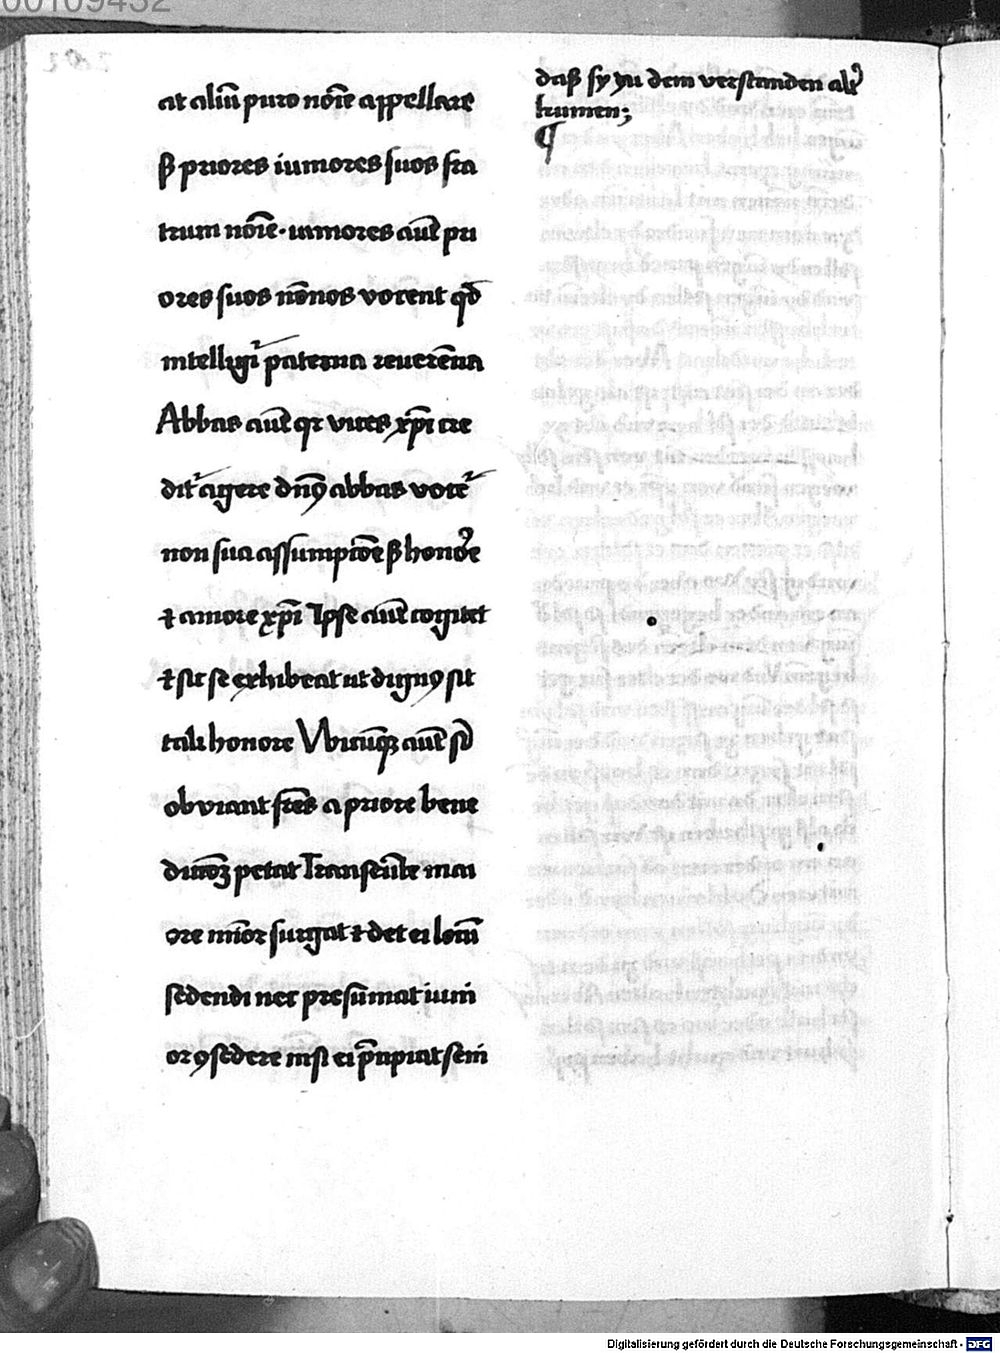 at aliū puro nōīe appellare
ꝫ priores iuniores suos fra
trum nōīe · iuniores aūt pri
ores suos nōnos vocent qd̄
intelligiꝰ paterna reuerēnia
Abbas aūt qꝛ vices xp̄i cre
ditꝰ agere dn̄ꝰ abbas vocēꝰ
non sua assumpcōe ꝫ honoꝛe
⁊ amore xp̄i Ipse aūt cogitet
⁊ sic se exhibeat ut dignꝰ sit
tali honore Vbicūqꝫ aūt sı̄
obviant fr̄es a priore bene
diccōꝫ petat Transeūte mai
ore mīor surgat ⁊ det ei locū
sedendi nec presumat iuni
or ꝯsedere nisi ei p̄cipiat seni
daß sy zu dem verstanden alꝰ
kumen;
¶
Digitalisierung gefördert durch die Deutsche Forschungsgemeinschaft - DFG